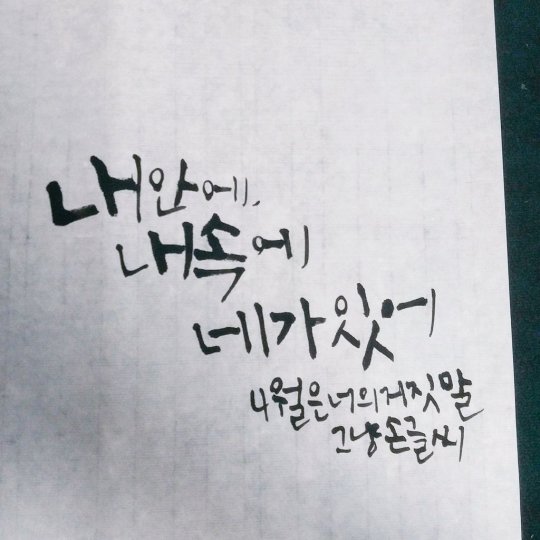 내안에.
내속에
네가있어
4월은너의거짓말
그냥손글씨